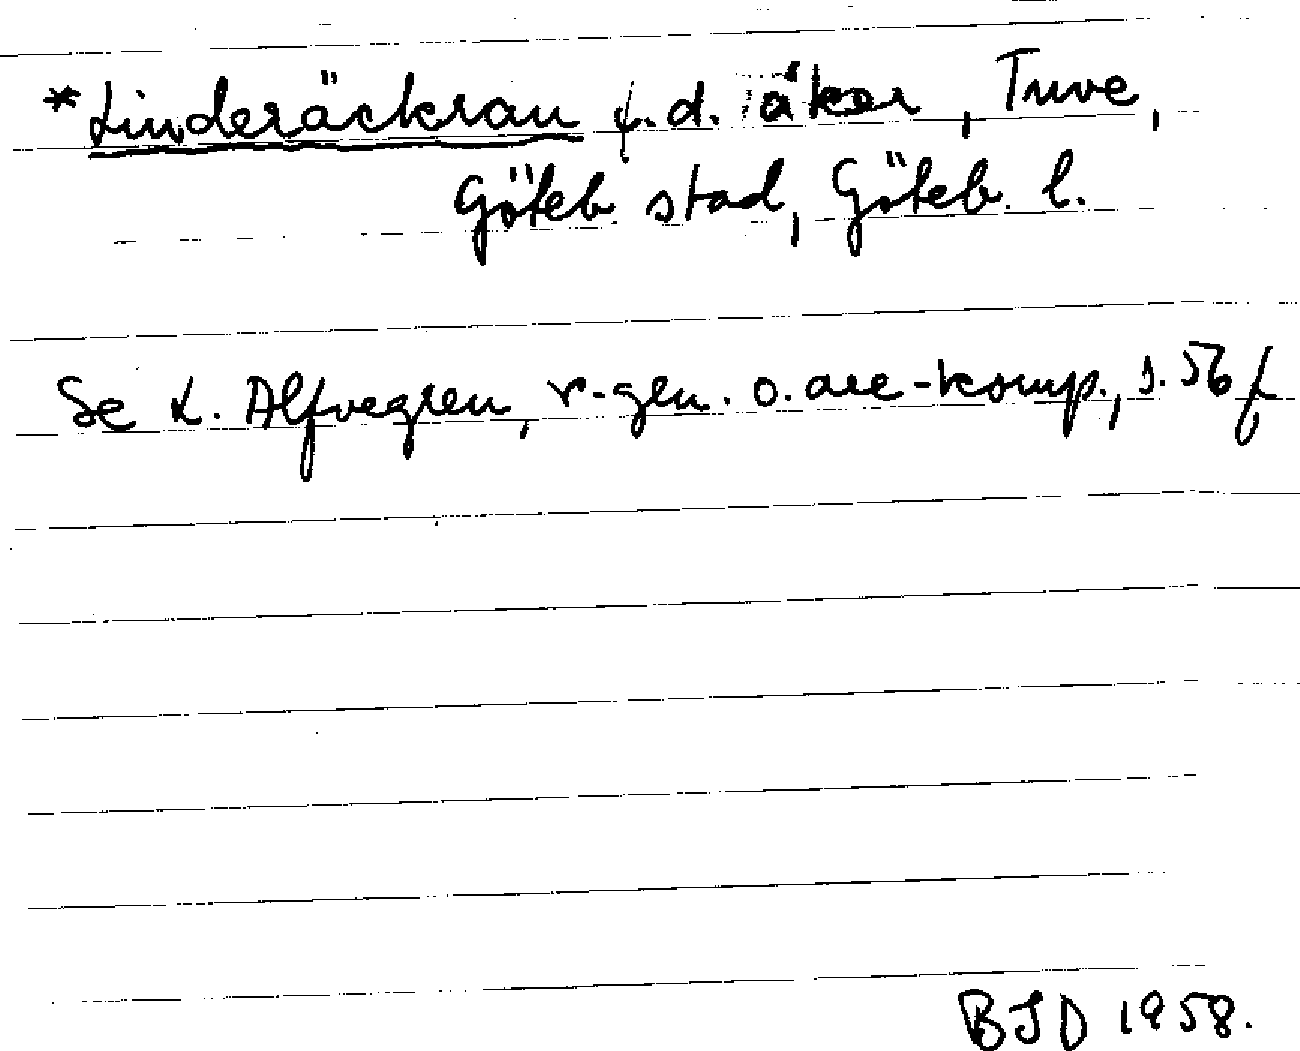 *Linderäckran f.d. åker, Tuve,
Göteb. stad, Göteb. l.
Se L. Alfvegren, r-gen. o. are-komp., s. 56 f
BJD 1958.